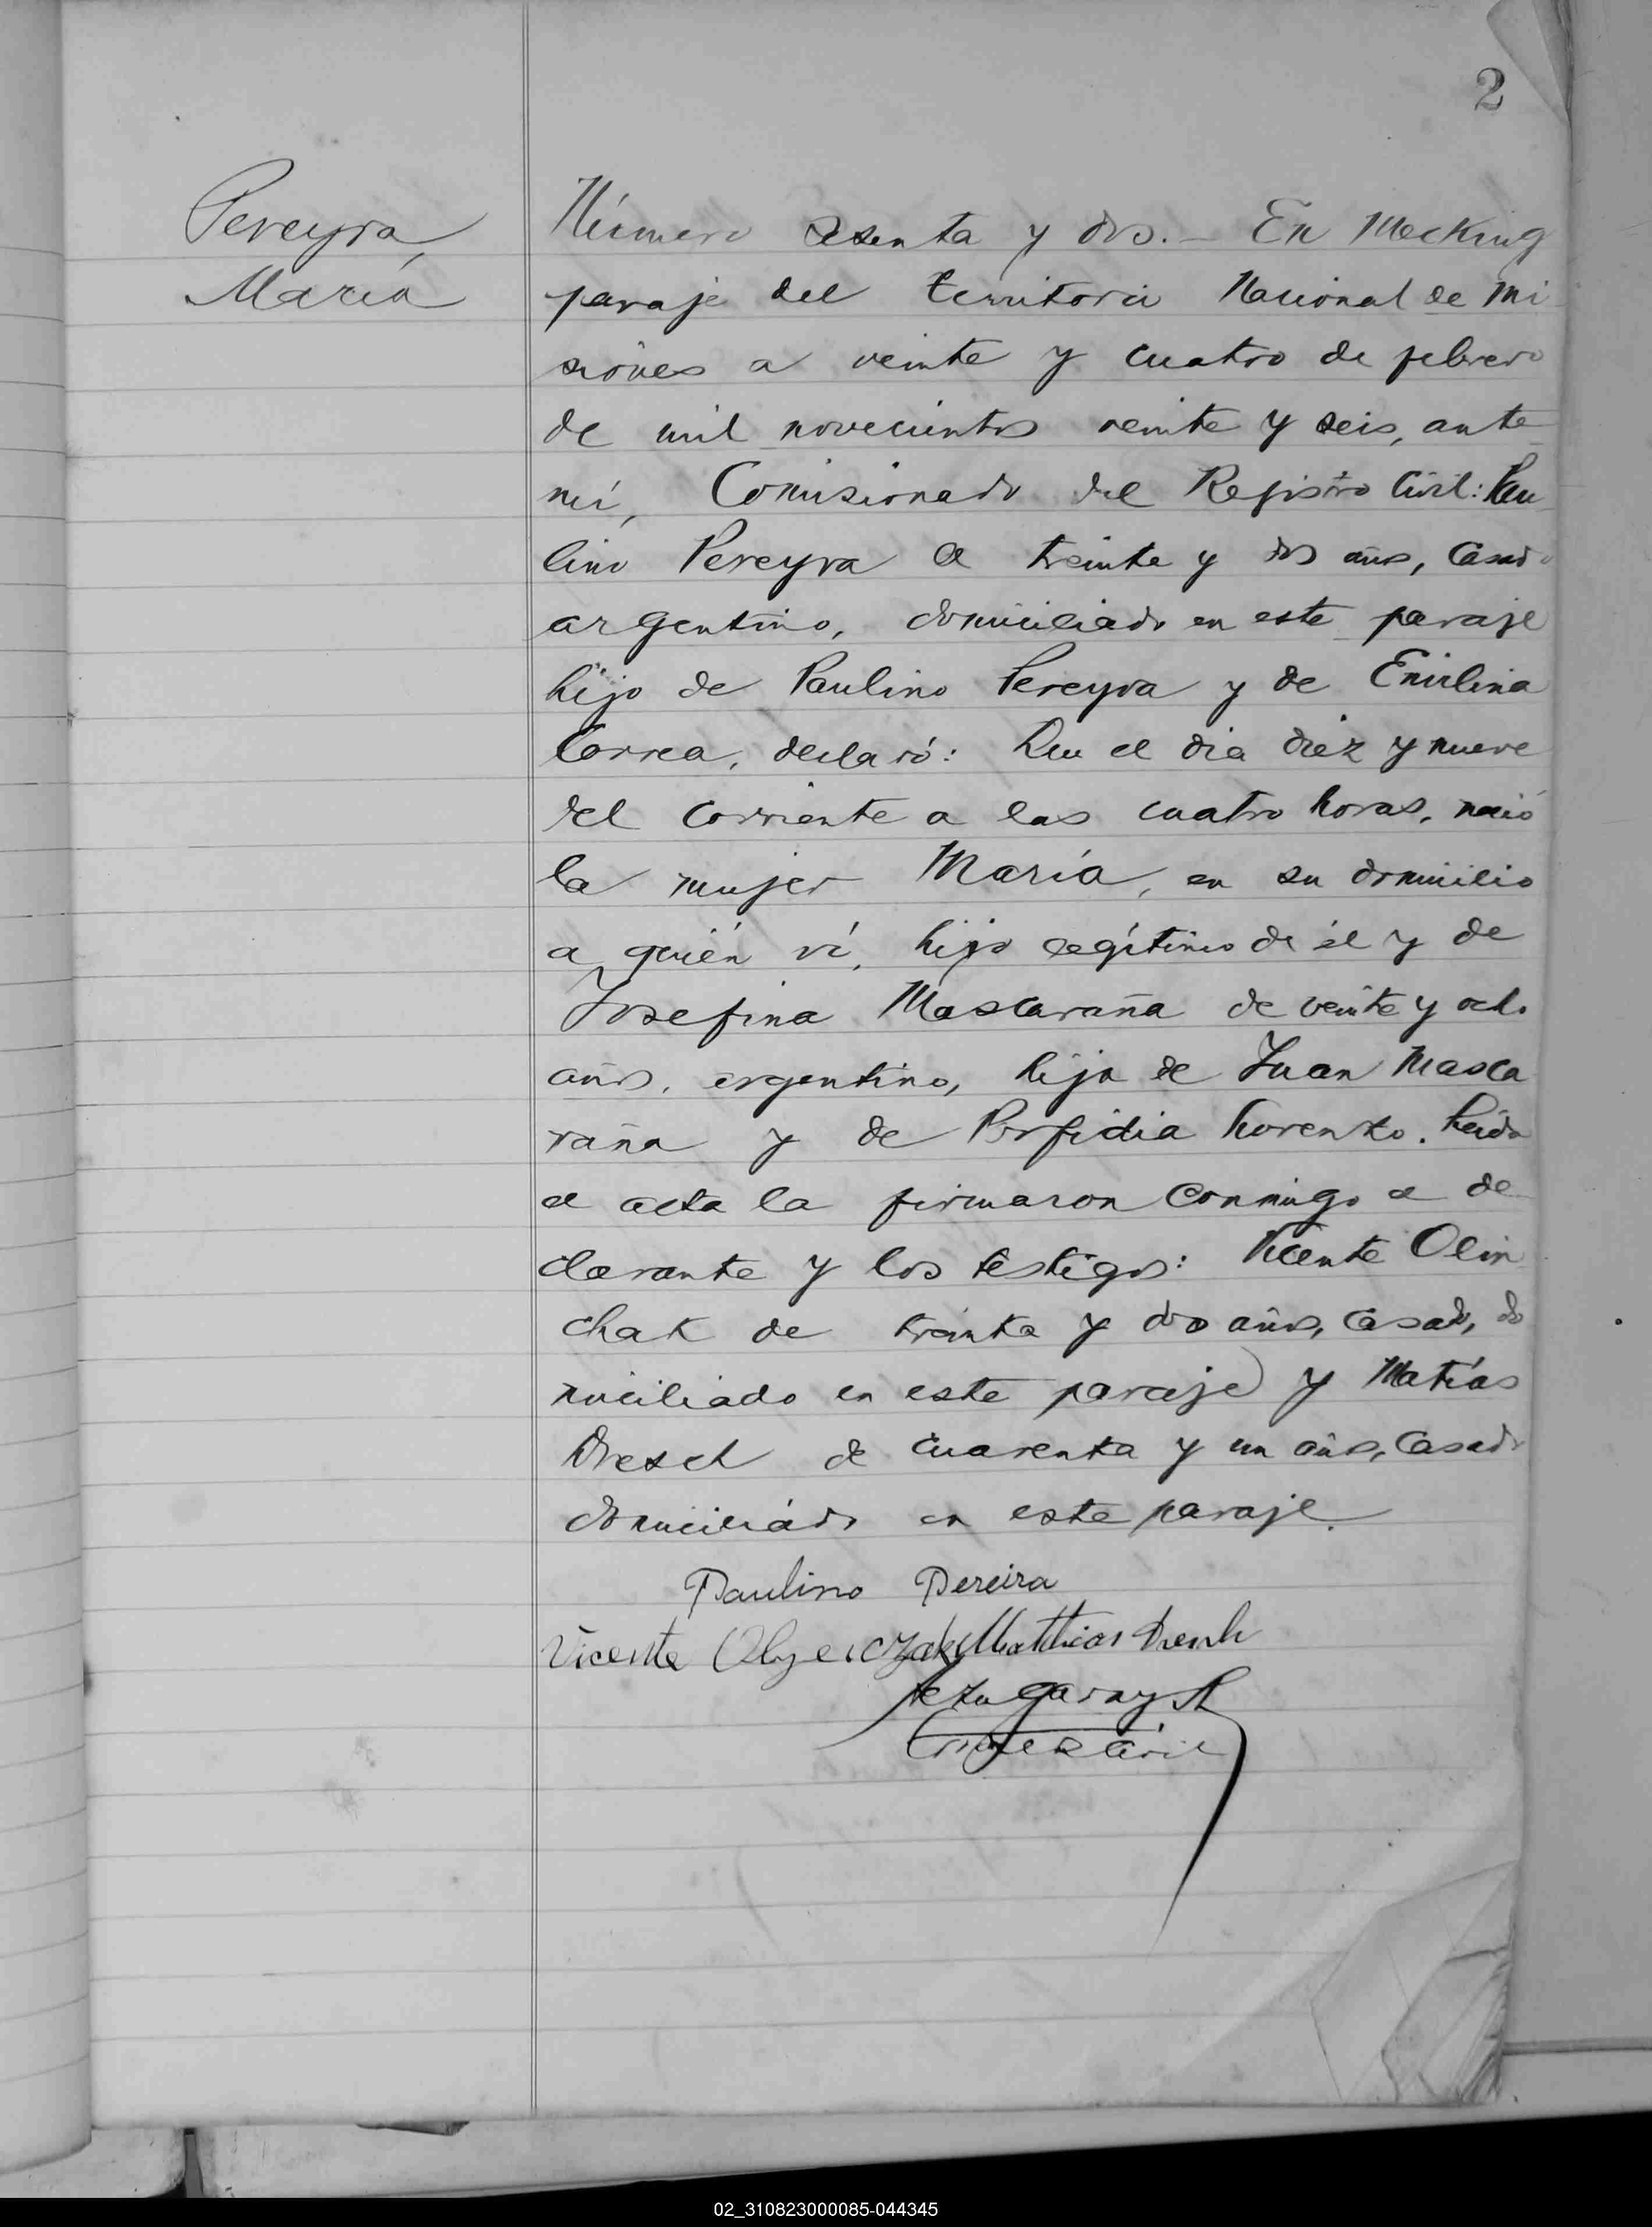 2
Pereyra,
María
Número sesenta y dos. — En Mecking
paraje del territorio Nacional de Mi
siones a veinte y cuatro de febrero
de mil novecientos veinte y seis, ante
mí, Comisionado del Registro Civil: Pau
lino Pereyra de treinta y dos años, casado
argentino, domiciliado en este paraje
hijo de Paulino Pereyra y de
Correa, declaró: Que el dia diez y nueve
del corriente a las cuatro horas, nació
la mujer María, en su domicilio
a quién ví, hijo legítimo de él y de
Josefina Mascaraña de veinte y ocho
años, argentino, hija de Juan Masca
raña y de Porfidia Lorenzo. Leída
el acta la firmaron conmigo el de
clarante y los testigos: Vicente Olin
chak de treinta y dos años, casado, do
miciliado en este paraje y Matías
Dresch de cuarenta y un años, casado
domiciliado en este paraje.
Paulino Pereira
Vicente Matthias Dresch
02_310823000085-044345